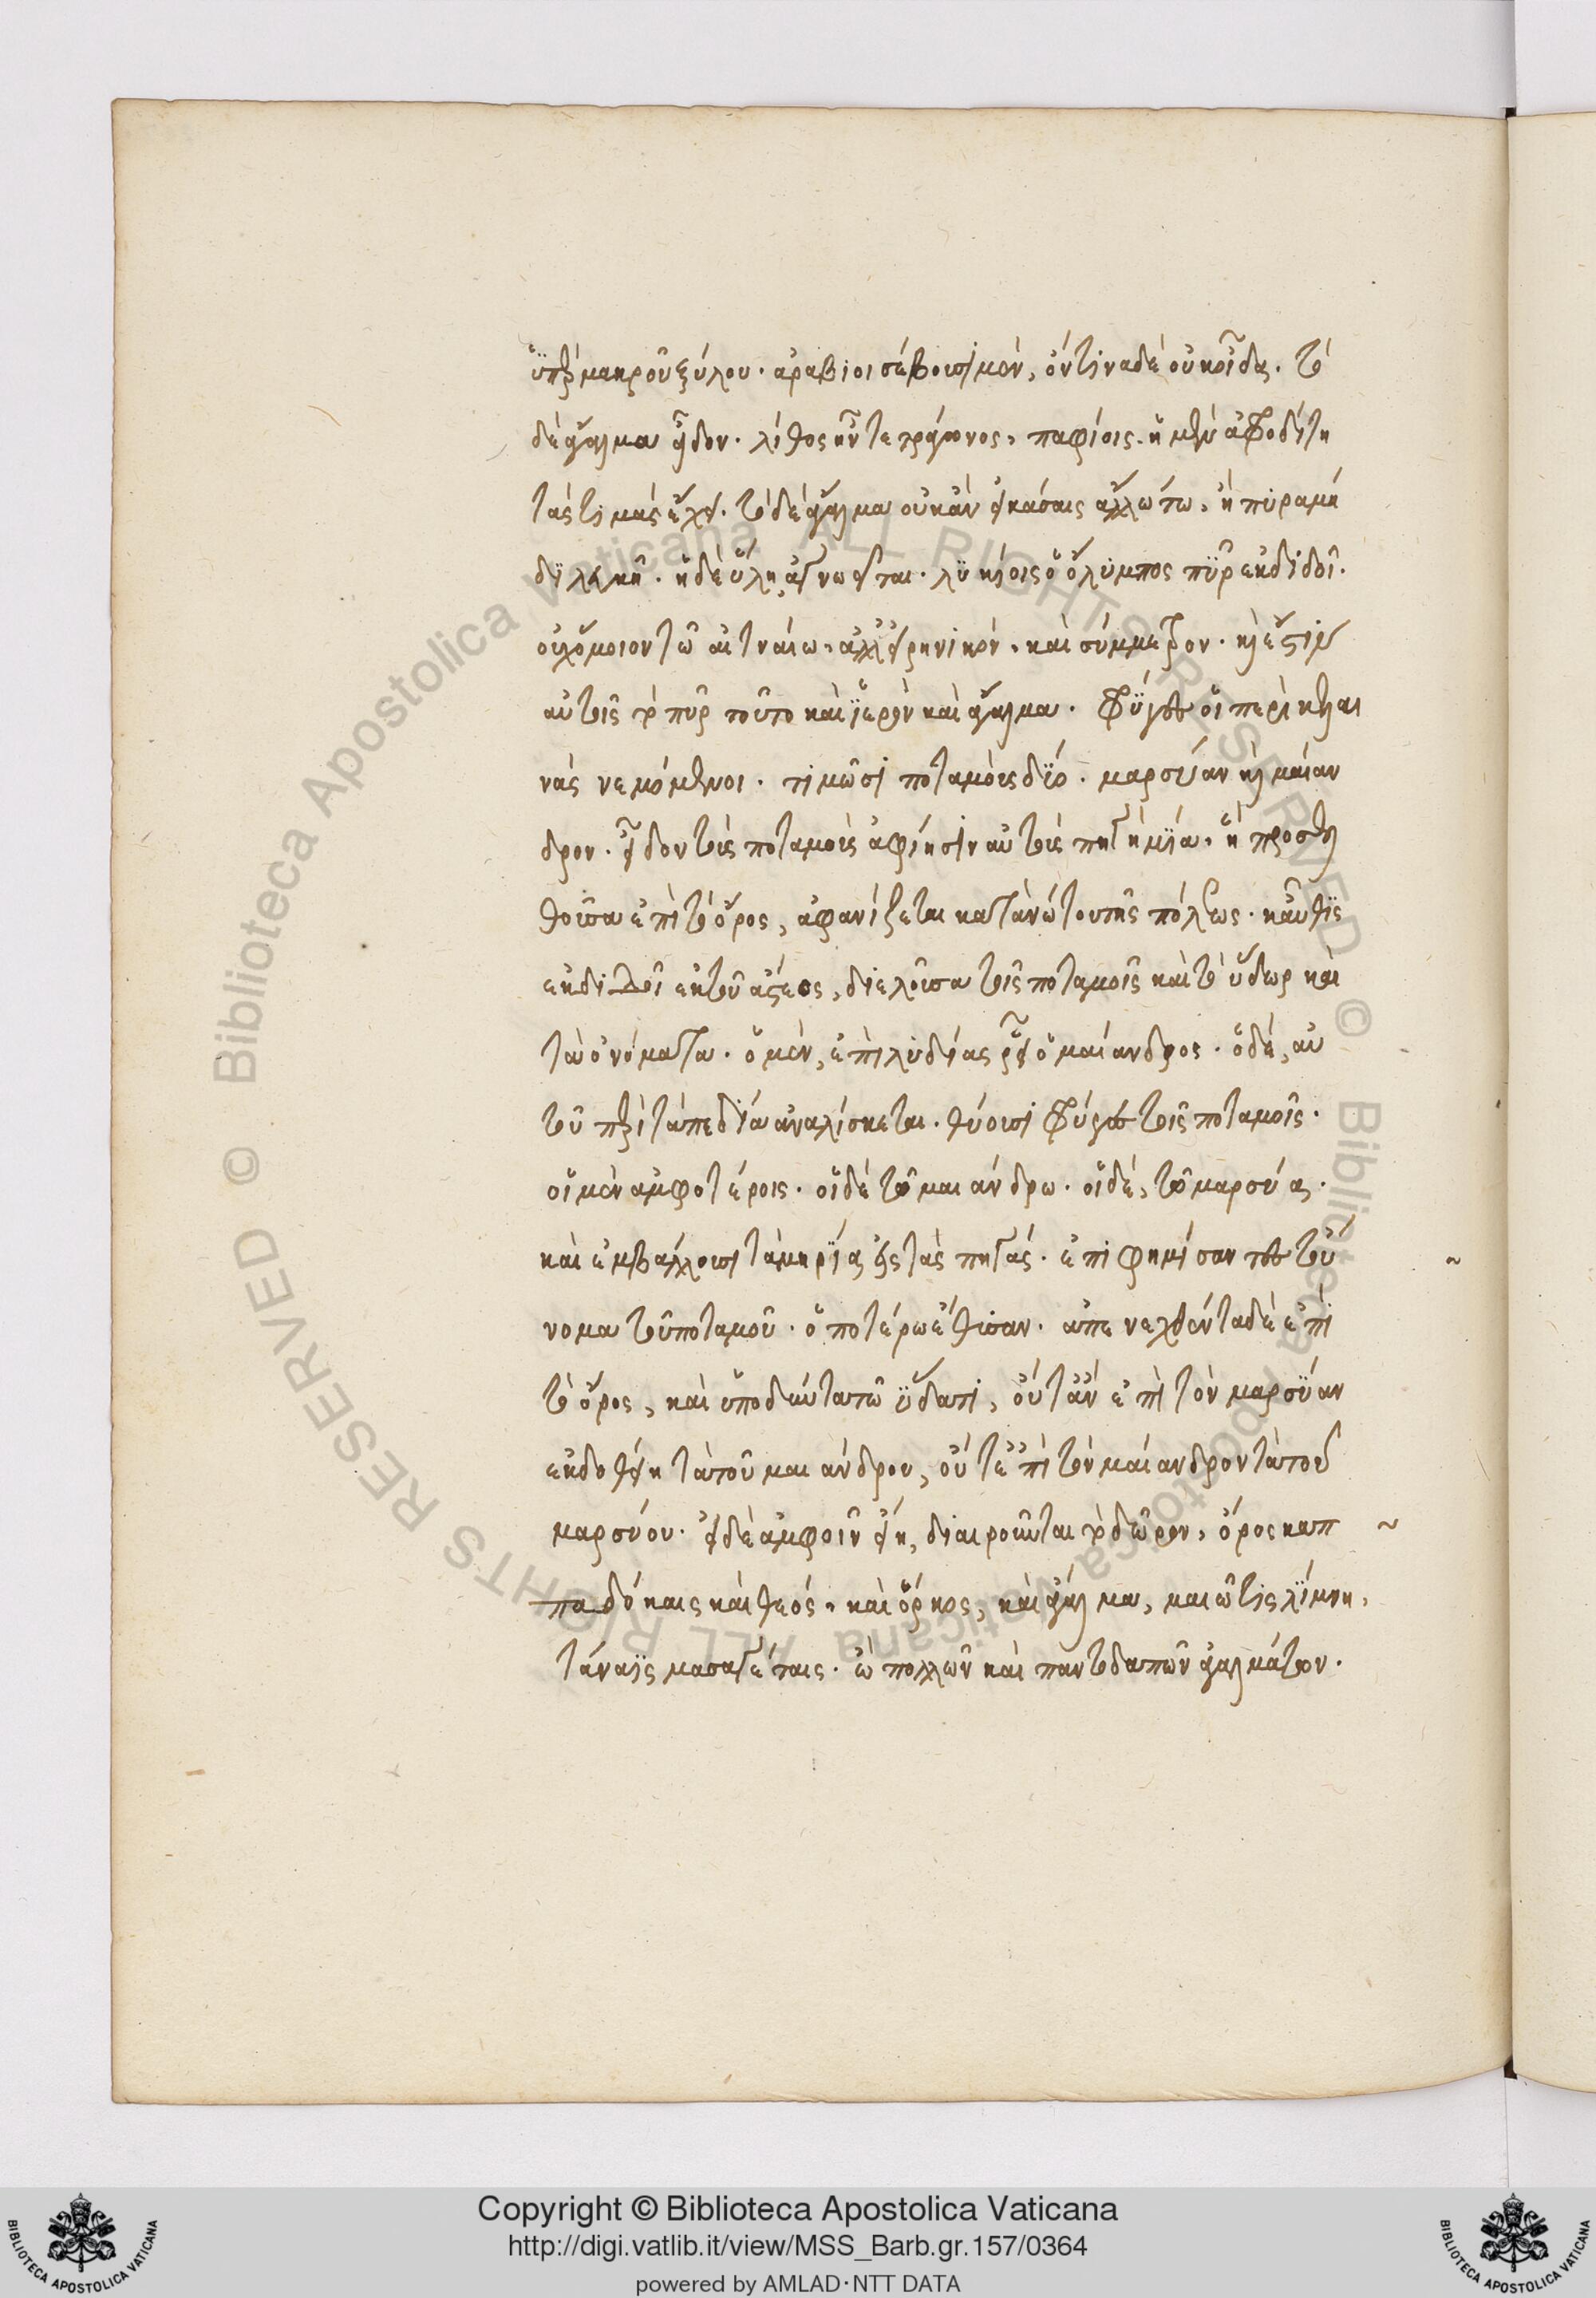 ὑπὲρ μακροῦ ξύλου. ἀράβιοι σέβουσι μὲν, ὅντινα δὲ οὐκ οἶδα. τὸ
δὲ ἄγαλμα εἶδον. λίθος ἦν τετράγωνος. παφίοις ἡ μὲν ἀφροδίτη
τὰς τιμὰς ἔχει. τὸ δὲ ἄγαλμα οὐκ ἂν εἰκάσαις ἄλλω τω, ἢ πυραμί
δι λευκῆ. ἡ δὲ ὕλη ἀγνοεῖται. λυκίοις ὁ ὄλυμπος πῦρ ἐκδιδοῖ.
οὐχ ὅμοιον τῶ αἰτναίω. ἀλλ' εἰρηνικὸν. καὶ σύμμετρον. καὶ ἔστιν
αὐτοῖς τὸ πῦρ τοῦτο καὶ ἱερὸν καὶ ἄγαλμα. φρύγες οἱ περὶ κελαι
νὰς νεμόμενοι. τιμῶσι ποταμοὺς δύο. μαρσύαν καὶ μαίαν
δρον. εἶδον τοὺς ποταμοὺς ἀφίησιν αὐτοὺς πηγὴ μία. ἣ προσελ
θοῦσα ἐπὶ τὸ ὄρος, ἀφανίζεται κατὰ νώτου τῆς πόλεως. καὖθις
ἐκδιδοῖ ἐκ τοῦ ἄστεος, διελοῦσα τοῖς ποταμοῖς καὶ τὸ ὕδωρ καὶ
τὰ ὀνόματα. ὁ μὲν, ἐπὶ λυδίας ῥεῖ ὁ μαίανδρος. ὁ δὲ, αὐ
τοῦ περὶ τὰ πεδία ἀναλίσκεται. θύουσι φρύγες τοῖς ποταμοῖς.
οἱ μὲν ἀμφοτέροις. οἱ δὲ τῶ μαιάνδρω. οἱ δὲ, τῶ μαρσύα.
καὶ ἐμβάλλουσι τὰ μηρία εἰς τὰς πηγάς. ἐπιφημίσαντες τοὔ
νομα τοῦ ποταμοῦ. ὁποτέρω ἔθυσαν. ἀπενεχθέντα δὲ ἐπὶ
τὸ ὄρος, καὶ ὑποδύντα τῶ ὕδατι, οὔτ' ἂν ἐπὶ τὸν μαρσύαν
ἐκδοθείη τὰ τοῦ μαιάνδρου, οὔτε ἐπὶ τὸν μαίανδρον τὰ τοῦ
μαρσύου. εἰ δὲ ἀμφοῖν εἴη, διαιροῦνται τὸ δῶρον. ὄρος καπ
παδόκαις καὶ θεός. καὶ ὅρκος, καὶ ἄγαλμα, μαιώταις λίμνη.
τάναϊς μασαγέταις. ὢ πολλῶν καὶ παντοδαπῶν ἀγαλμάτων.
Copyright © Biblioteca Apostolica Vaticana
http://digi.vatlib.it/view/MSS_Barb.gr.157/0364
powered by AMLAD·NTT DATA